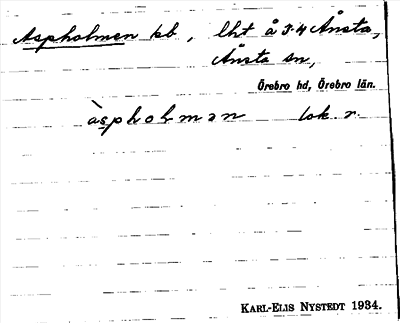 Aspholmen kb, lht å 3:4 Ånsta,
Ånsta sn,
Örebro hd, Örebro län.
àspholmən lok. r.
KARL-ELIS NYSTEDT 1934.